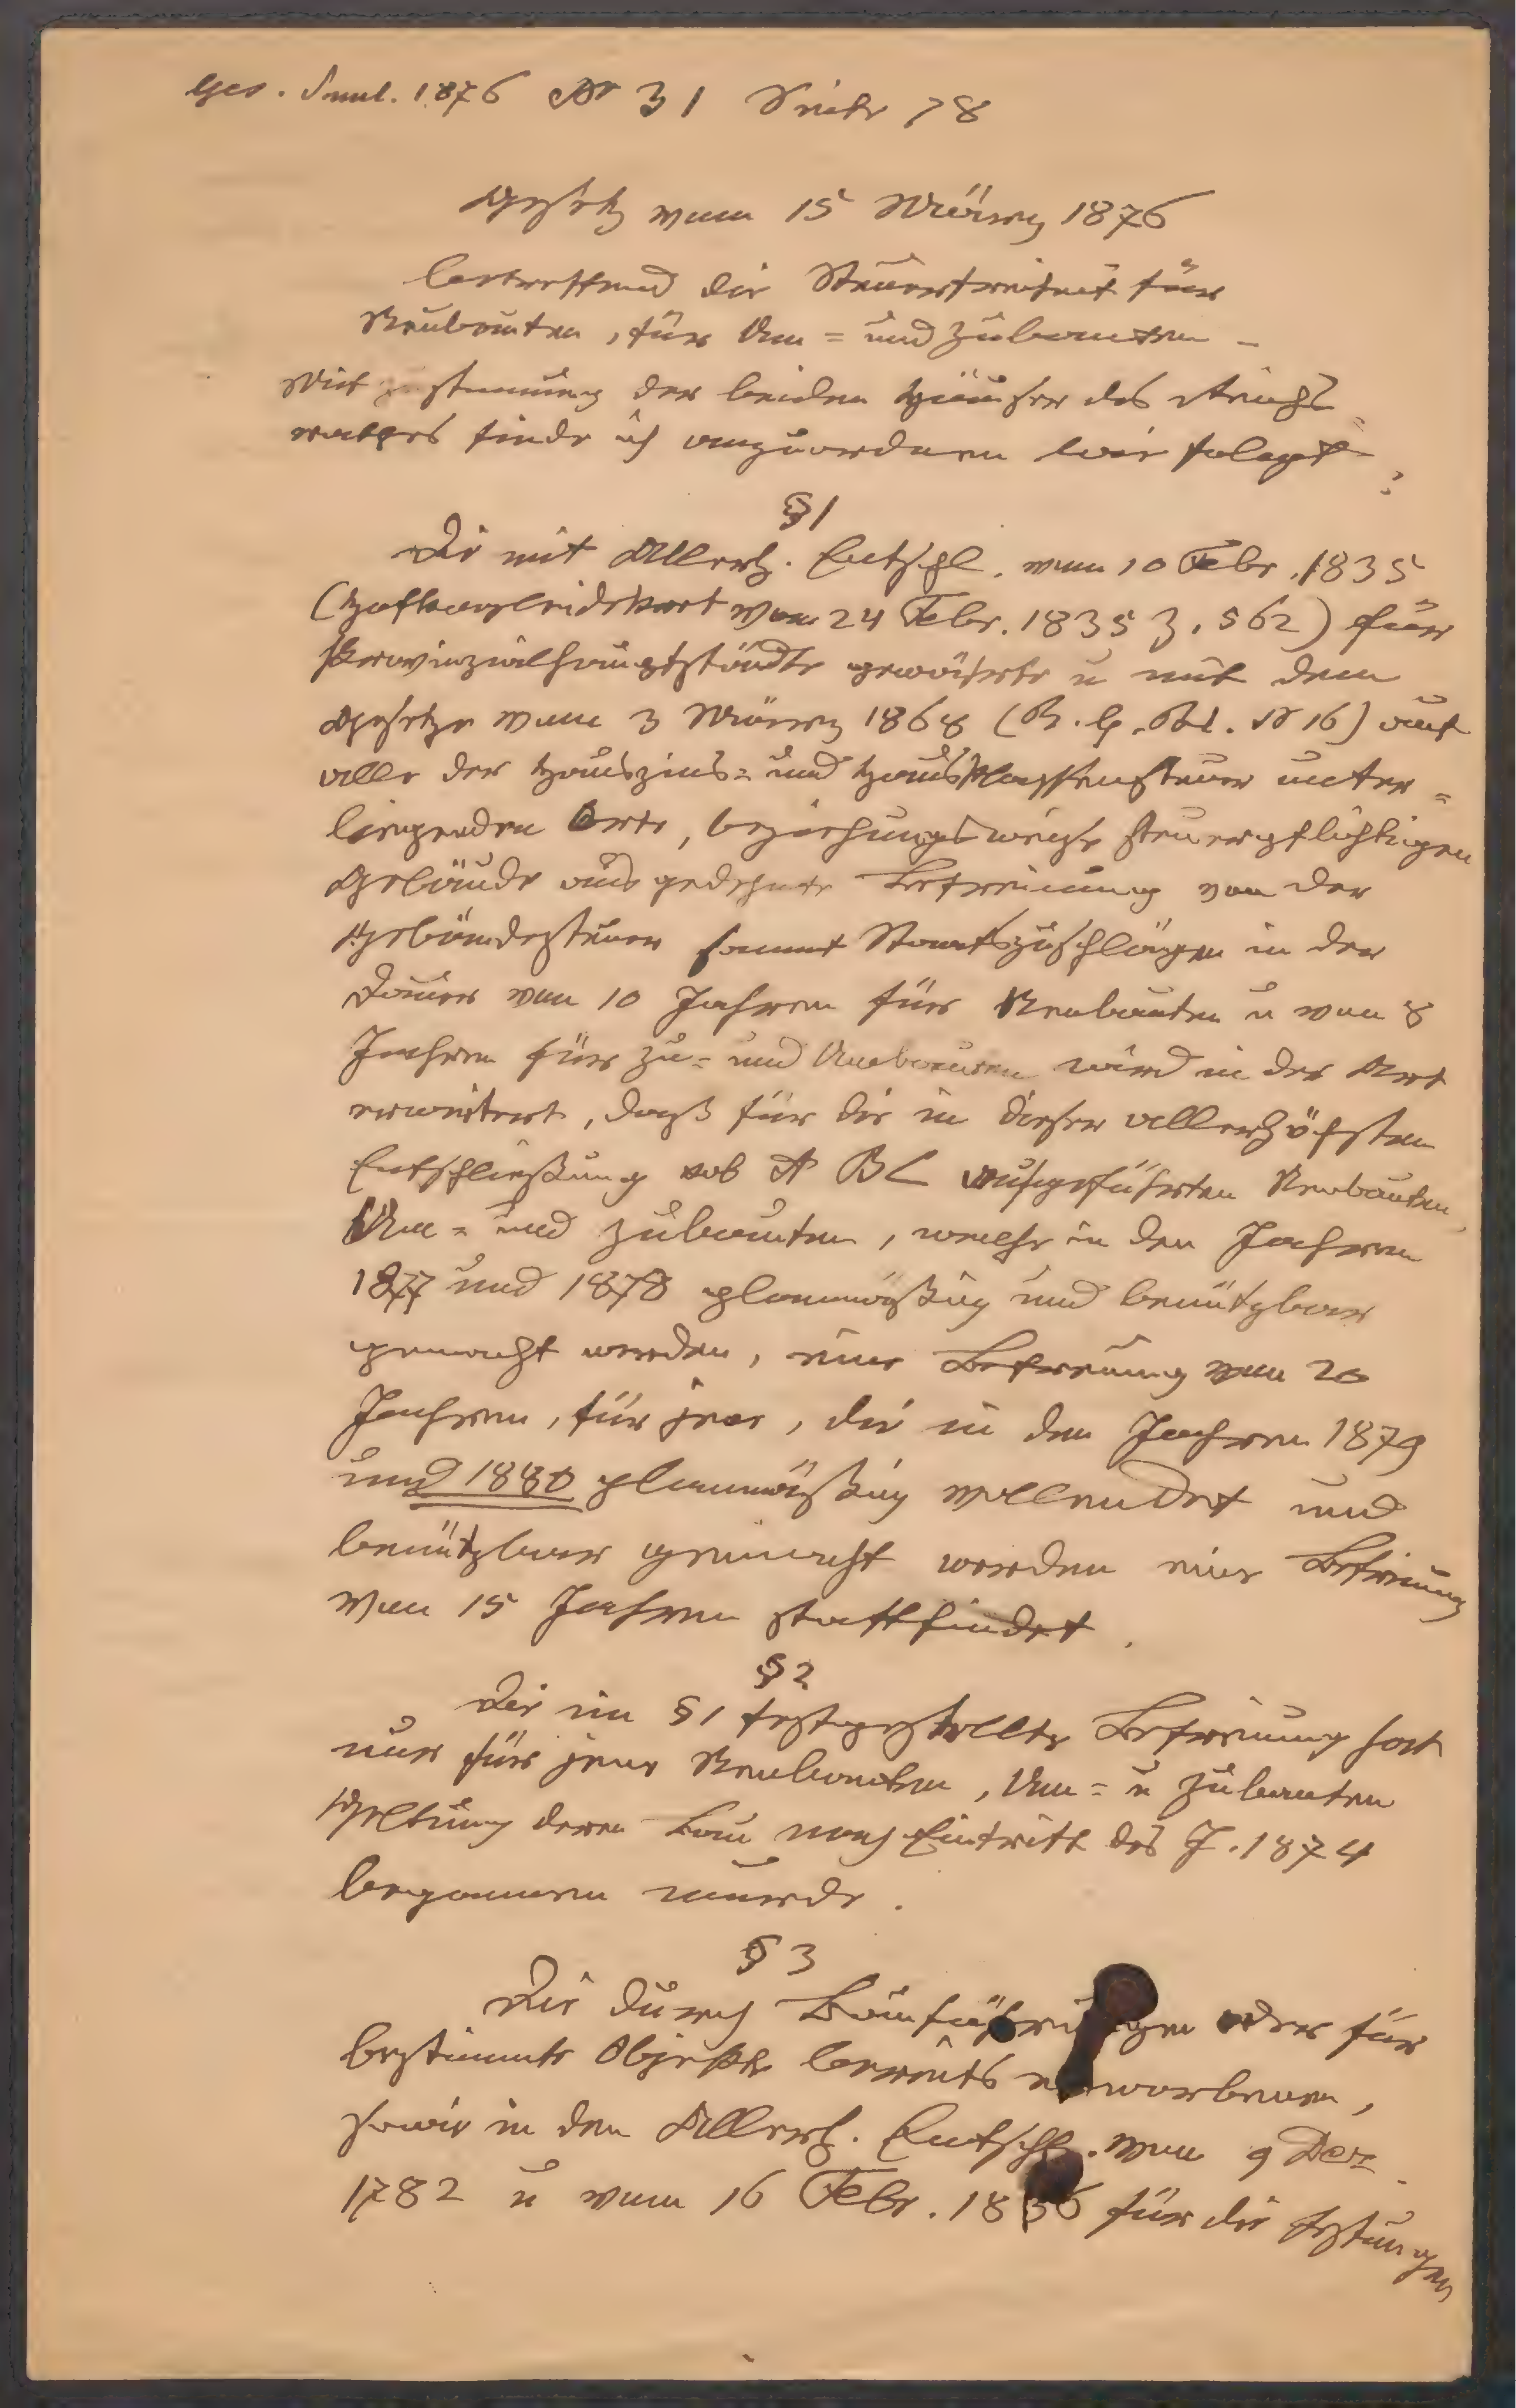 Ges. Saml. 1876 Nr 31 Seite 78
Gesetz vom 15 März 1876
betreffend die Steuerfreiheit für
Neubauten, für Um= und Zubauten –
Mit Zustimmung der beiden Häuser des Reichs
rathes finde ich anzuordnen wie folgt:
§ 1
Die mit Allerh. Entschl. vom 10 Febr. 1835
(Hofkanzleidekret vom 24 Febr. 1835 Z. 562) für
Provinzialhauptstädte gewährte u mit dem
Gesetze vom 3 März 1868 (R. G. Bl. N 16) auf
alle der Hauszins= und Hausklassensteuer unter=
liegenden Orte, beziehungsweise steuerpflichtigen
Gebäude ausgedehnte Befreiung von der
Gebäudesteuer sammt Staatszuschlägen in der
Dauer von 10 Jahren für Neubauten u von 8
Jahren für Zu= und Umbauten wird in der Art
erweitert, daß für die in dieser allerhöchsten
Entschließung sub A B C aufgeführten Neubauten,
Um= und Zubauten, welche in den Jahren
1877 und 1878 planmäßig und benützbar
gemacht werden, eine Befreiung von 20
Jahren, für jene, die in den Jahren 1879
und 1880 planmäßig vollendet und
benützbar gemacht werden eine Befreiung
von 15 Jahren stattfindet.
§ 2
Die im § 1 festgestellte Befreiung hat
nur für jene Neubauten, Um= u Zubauten
Geltung deren Bau nach Eintritt des J. 1874
begonnen wurde.
§ 3
Die durch Bauführungen oder für
bestimmte Objekte bereits erworbenen,
sowie in den Allerh. Entschl. vom 9 Dez.
1782 u vom 16 Febr. 1836 für die Festungen